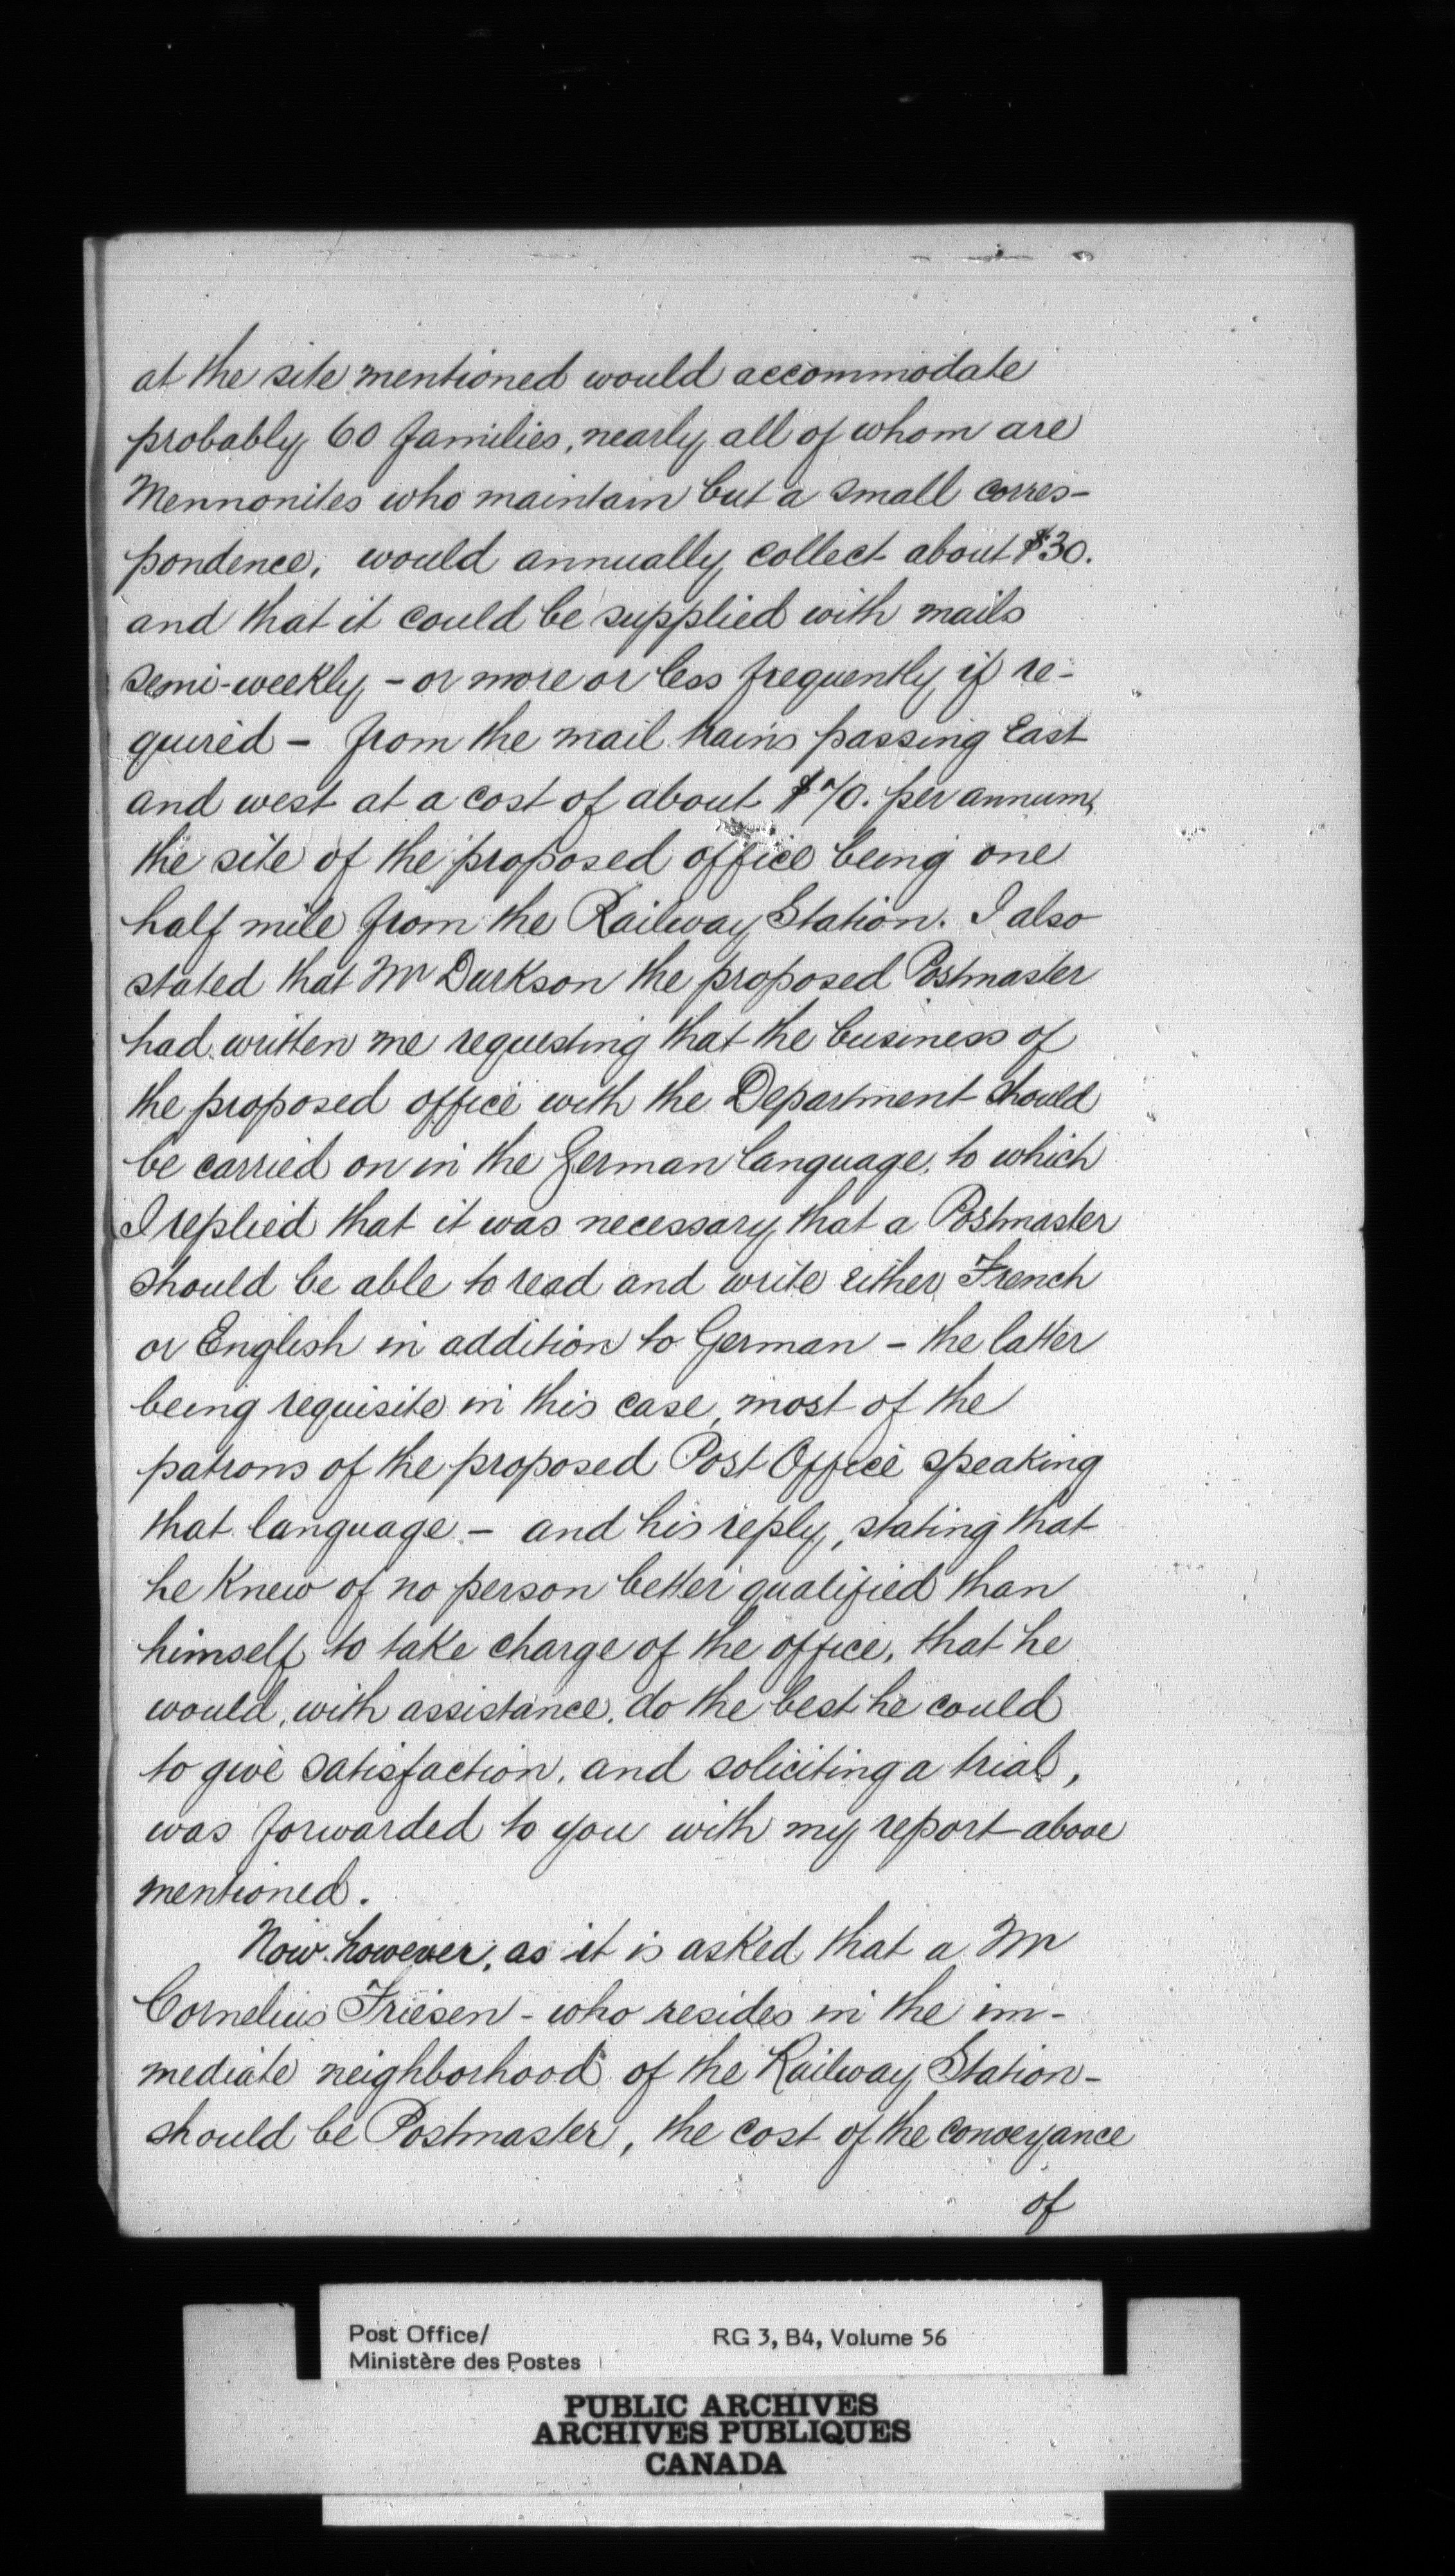 at the site mentioned would accommodate
probably 60 families, nearly all of whom are
Mennonites who maintain but a small corres-
pondence, would annually collect about $30.
and that it could be supplied with mails
semi-weekly - or more or less frequently if re-
quired - from the mail trains passing East
and west at a cost of about $70. per annum,
the site of the proposed office being one
half mile from the Railway Station. I also
stated that Mr Durkson the proposed Postmaster
had written me requesting that the business of
the proposed office with the Department should
be carried on in the German language, to which
I replied that it was necessary that a Postmaster
should be able to read and write either French
or English in addition to German - the latter
being requisite in this case, most of the
patrons of the proposed Post Office speaking
that language - and his reply, stating that
he knew of no person better qualified than
himself to take charge of the office, that he
would, with assistance, do the best he could
to give satisfaction, and soliciting a trial,
was forwarded to you with my report above
mentioned.
Now however, as it is asked that a Mr
Cornelius Friesen - who resides in the im-
mediate neighborhood of the Railway Station -
should be Postmaster, the cost of the conveyance
of
Post Office/ RG 3, B4, Volume 56
Ministère des Postes
PUBLIC ARCHIVES
ARCHIVES PUBLIQUES
CANADA